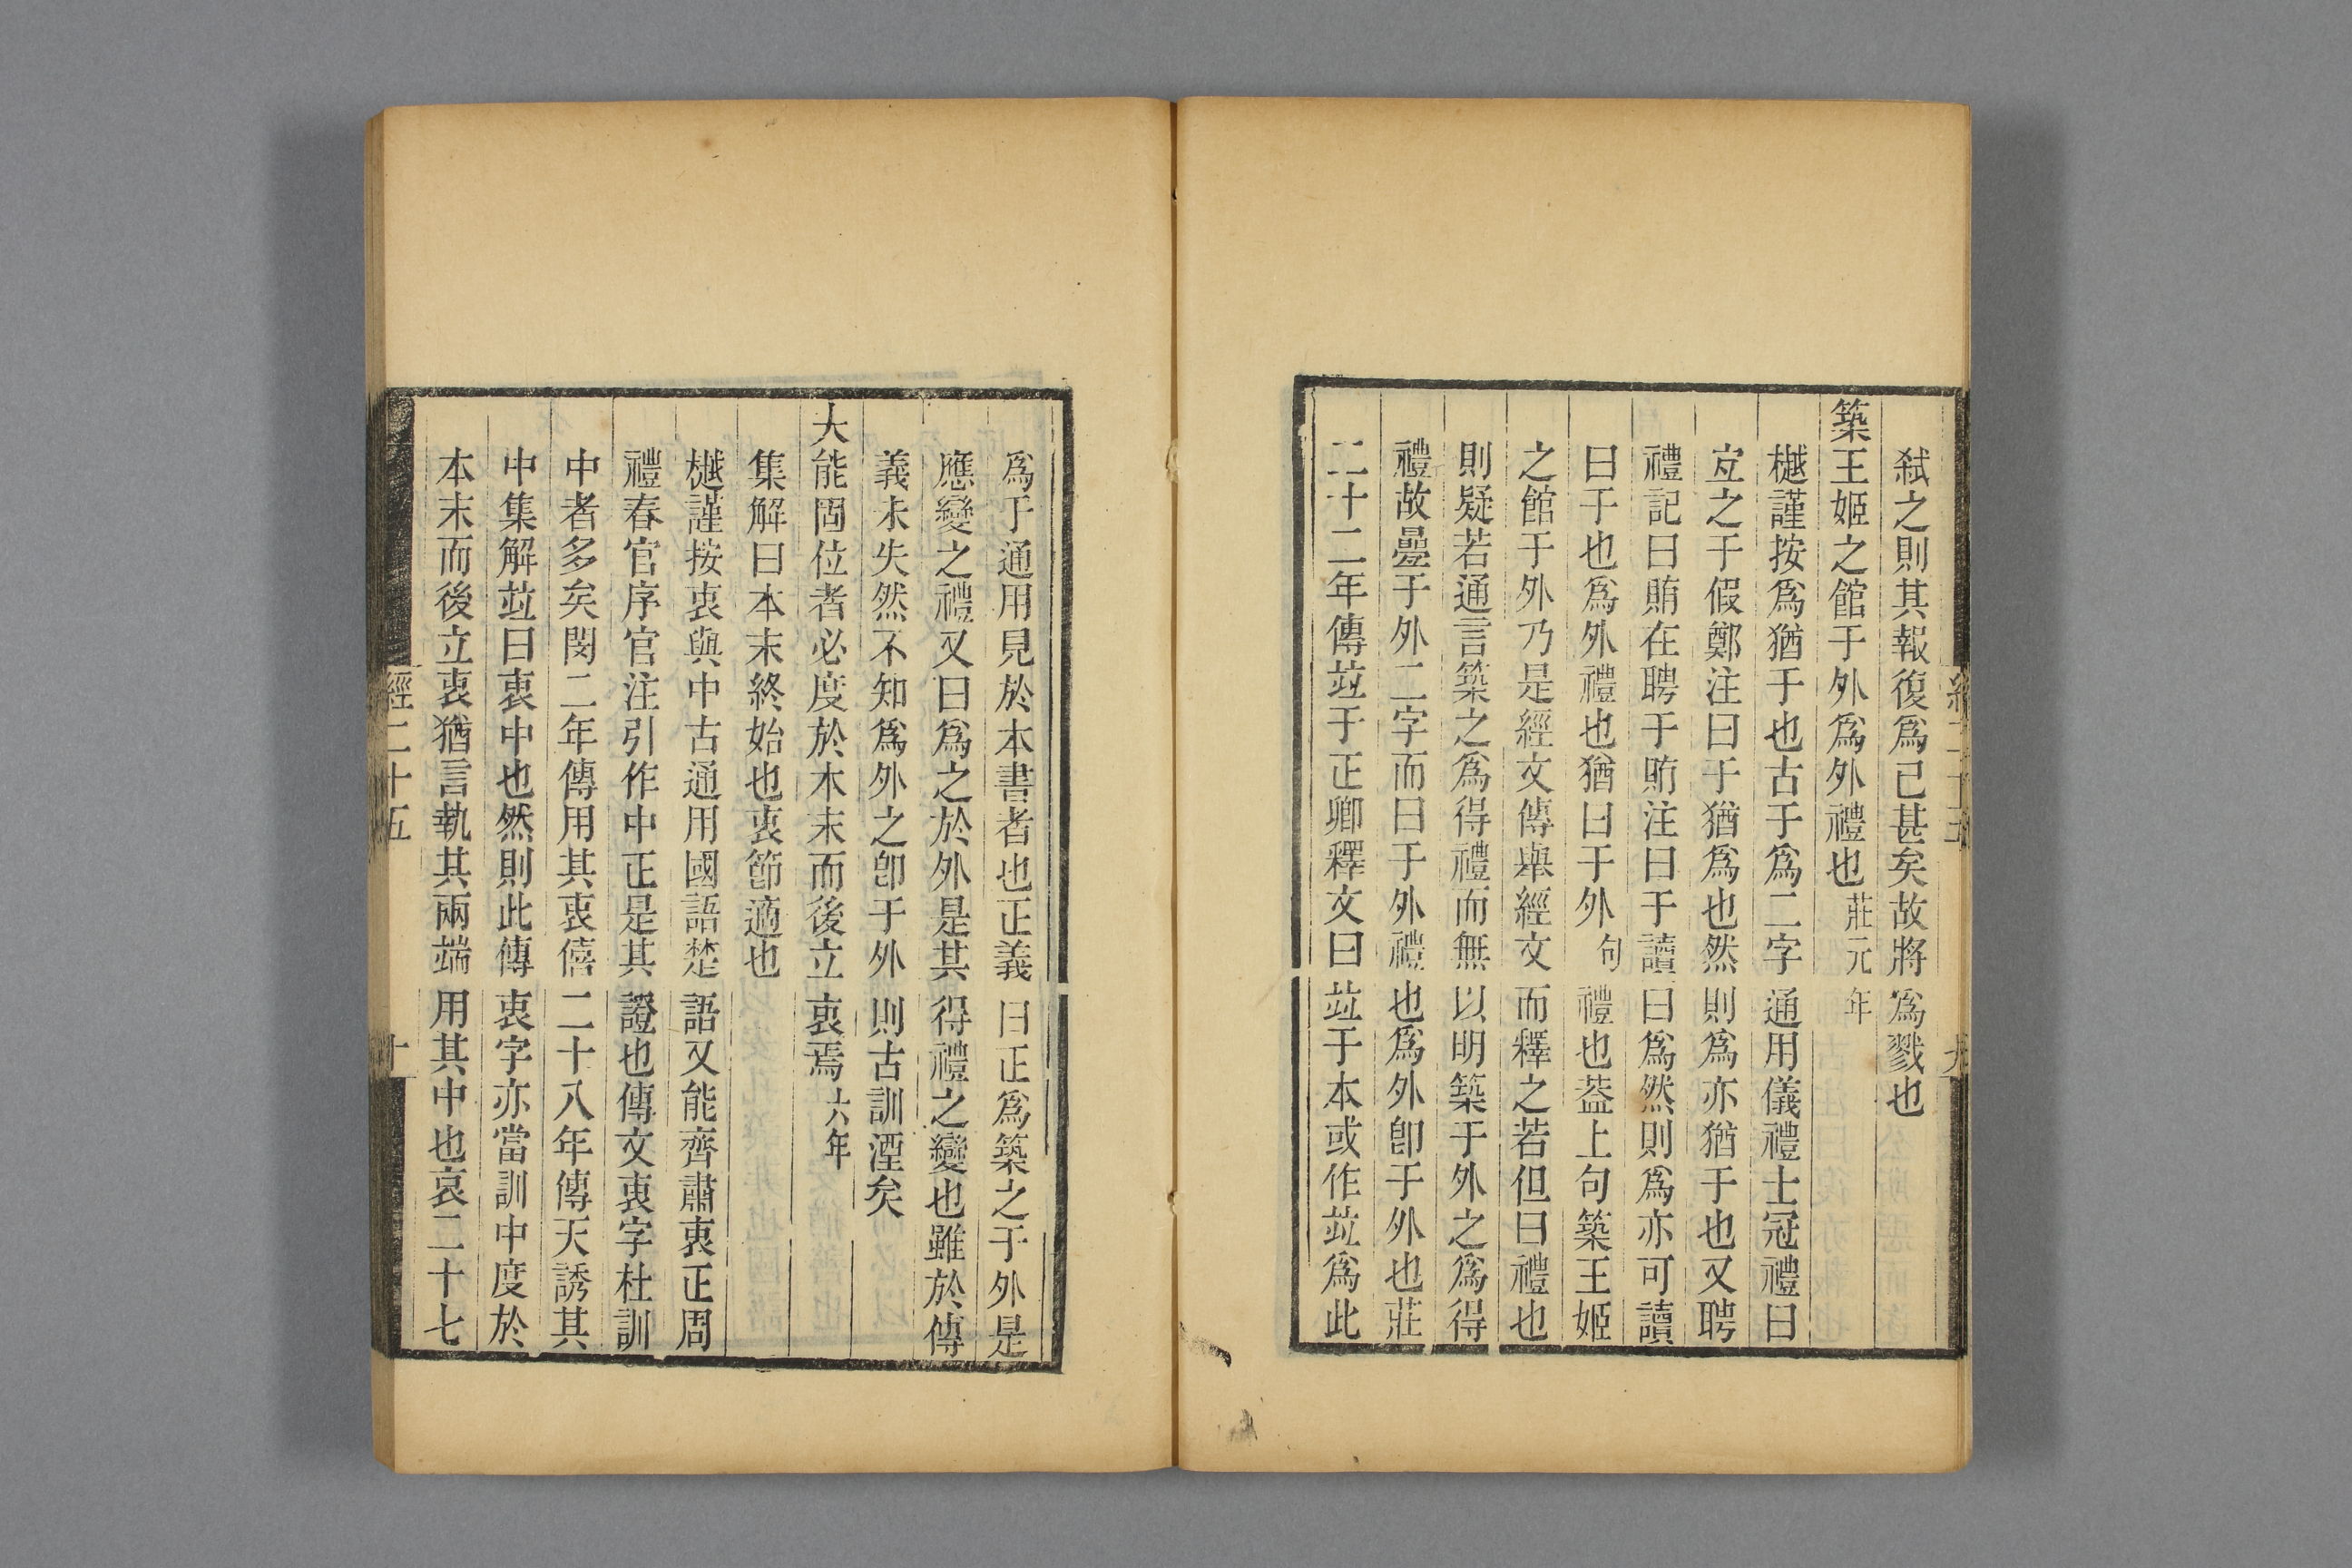 弑之則其報復爲已甚矣故將爲戮也
築王姬之館于外爲外禮也莊元年
樾謹按爲猶于也古于爲二字通用儀禮士冠禮曰
宐之于假鄭注曰于猶爲也然則爲亦猶于也又聘
禮記曰賄在聘于賄注曰于讀曰爲然則爲亦可讀
曰于也爲外禮也猶曰于外句禮也葢上句築王姬
之館于外乃是經文傳舉經文而釋之若但曰禮也
則疑若通言築之爲得禮而無以明築于外之爲得
禮故曡于外二字而曰于外禮也爲外卽于外也莊
二十二年傳竝于正卿釋文曰竝于本或作竝爲此
爲于通用見於本書者也正義曰正爲築之于外是
應變之禮又曰爲之於外是其得禮之變也雖於傳
義未失然不知爲外之卽于外則古訓湮矣
大能固位者必度於本末而後立衷焉六年
集解曰本末終始也衷節適也
樾謹按衷與中古通用國語楚語又能齊肅衷正周
禮春官序官注引作中正是其證也傳文衷字杜訓
中者多矣閔二年傳用其衷僖二十八年傳天誘其
中集解竝曰衷中也然則此傳衷字亦當訓中度於
本末而後立衷猶言執其兩端用其中也哀二十七
經二十五
十